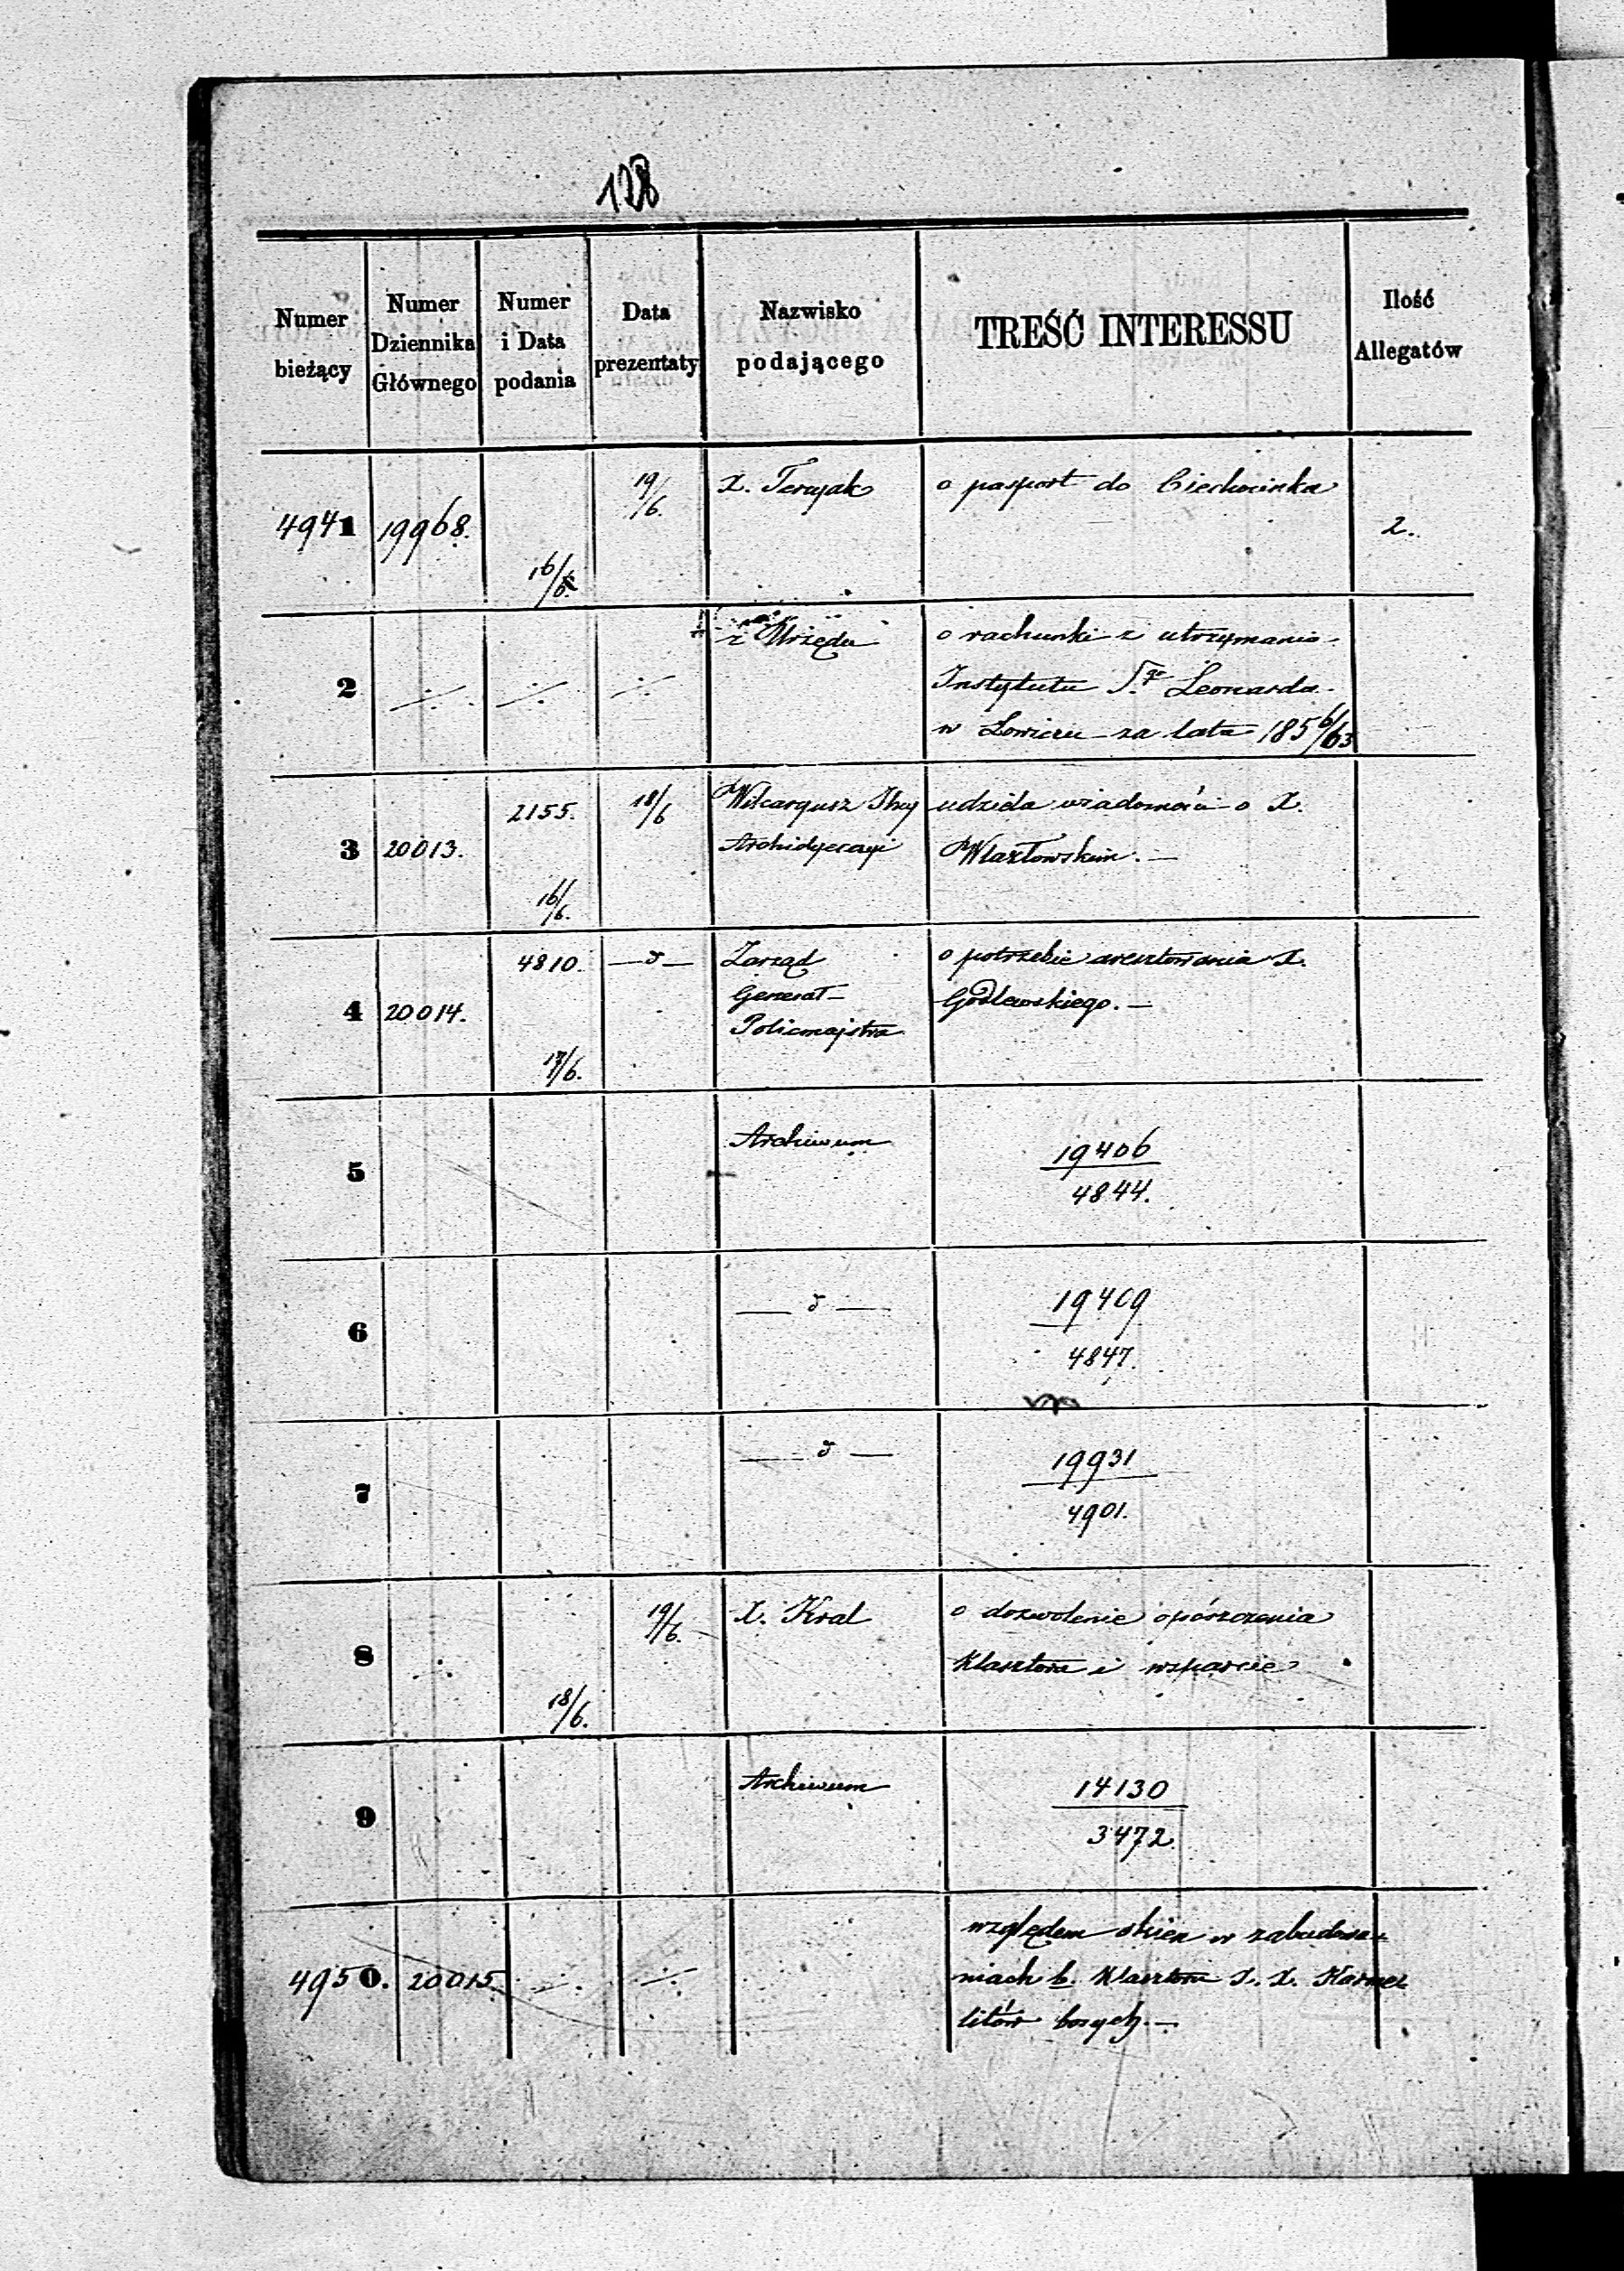 128
Numer bieżący
Numer Dziennika Głównego
Numer i Data podania
Data prezentaty
Nazwisko podającego
TREŚĆ INTERESSU
Ilość Allegatów
4941 19968. 16/6. 19/6. X. o pasport do Ciechocinka 2.
2 ./. ./. ./. z Urzędu o rachunki z utrzymania
Instytutu S.go Leonarda
w Łowiczu za lata 1856/63
3 20013. 2155. 16/6. 18/6 udziela wiadomości o X.
Archidyecezyi Wlazłowskim. —
4 20014. 4810. 17/6. — d — Zarząd o potrzebie aresztowania X.
Generał- Godlewskiego. —
Policmajstra
5 Archiwum 19406
4844.
6 — d — 19409
4847.
7 — d — 19931
4901.
8 ./. 18/6. 19/6. X. Kral o dozwolenie opószczenia
Klasztoru i wsparcie
9 Archiwum 14130
3472.
4950. 20015 ./. ./. względem okien w zabudowa-
niach b. Klasztoru X. X. Karmel
litów bosych. —